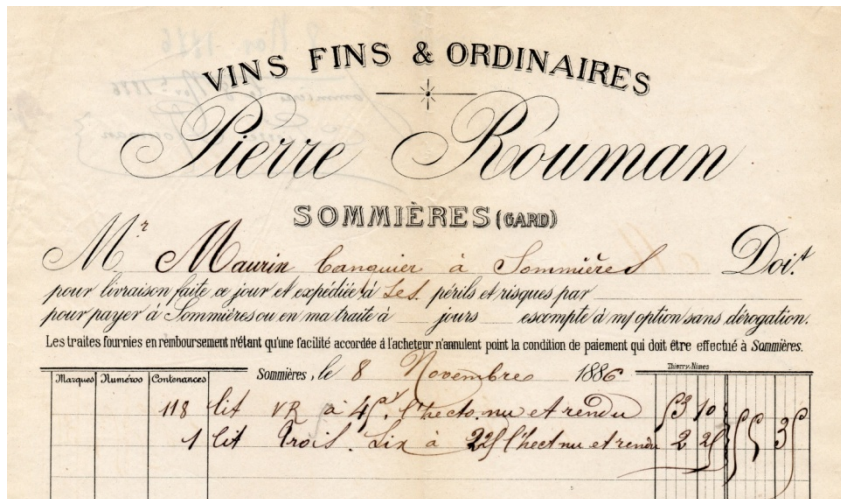 VINS FINS & ORDINAIRES
Pierre Rouman
SOMMIÈRES (GARD)
Mr. Maurin banquier à Sommières Doit.
pour livraison faite ce jour et expédiée à ses périls et risques par
pour payer à Sommières ou en ma traite à jours escompte à m/ option sans dérogation.
Les traites fournies en remboursement n'étant qu'une facilité accordée à l'acheteur n'annulent point la condition de paiement qui doit être effectué à Sommières.
Marques Numéros Contenances Sommières, le 8 Novembre 1886 Thierry-Nimes
118 lit VR à 45f. l'hecto. nu et rendu 53 10
1 lit Trois. Six à 225 l'hect nu et rendu 2 25 55 35